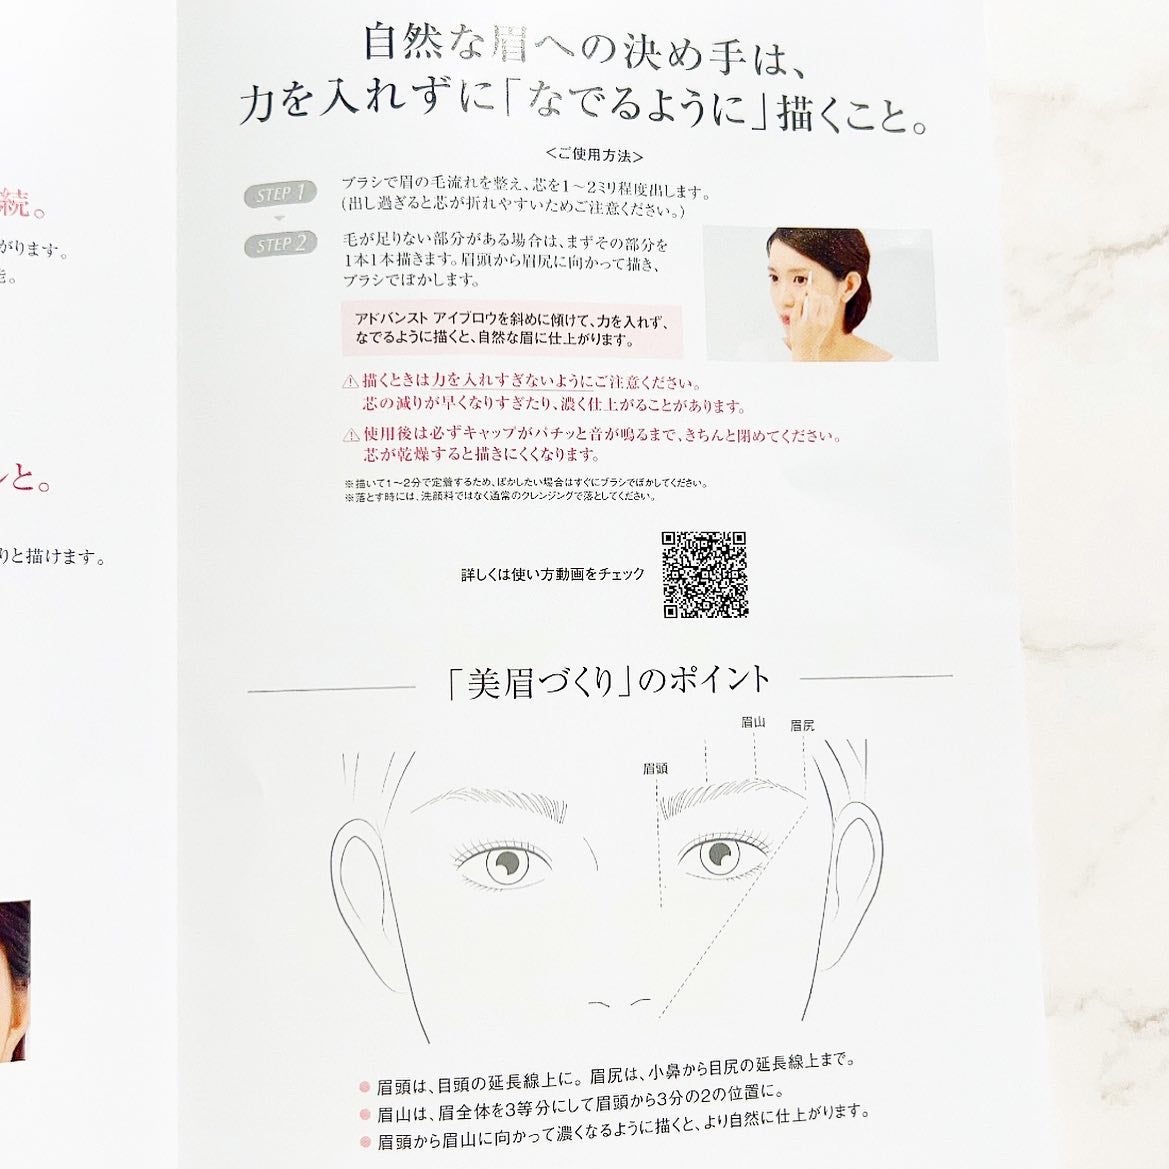 自然な眉への決め手は、
力を入れずに「なでるように」描くこと。
＜ご使用方法＞
STEP 1
ブラシで眉の毛流れを整え、芯を1～2ミリ程度出します。
（出し過ぎると芯が折れやすいためご注意ください。）
STEP 2
毛が足りない部分がある場合は、まずその部分を
1本1本描きます。眉頭から眉尻に向かって描き、
ブラシでぼかします。
アドバンスト アイブロウを斜めに傾けて、力を入れず、
なでるように描くと、自然な眉に仕上がります。
描くときは力を入れすぎないようにご注意ください。
芯の減りが早くなりすぎたり、濃く仕上がることがあります。
使用後は必ずキャップがパチッと音が鳴るまで、きちんと閉めてください。
芯が乾燥すると描きにくくなります。
※描いて1～2分で定着するため、ぼかしたい場合はすぐにブラシでぼかしてください。
※落とす時には、洗顔料ではなく通常のクレンジングで落としてください。
詳しくは使い方動画をチェック
「美眉づくり」のポイント
眉山
眉尻
眉頭
眉頭は、目頭の延長線上に。眉尻は、小鼻から目尻の延長線上まで。
眉山は、眉全体を3等分にして眉頭から3分の2の位置に。
眉頭から眉山に向かって濃くなるように描くと、より自然に仕上がります。
続。
がります。
と。
りと描けます。